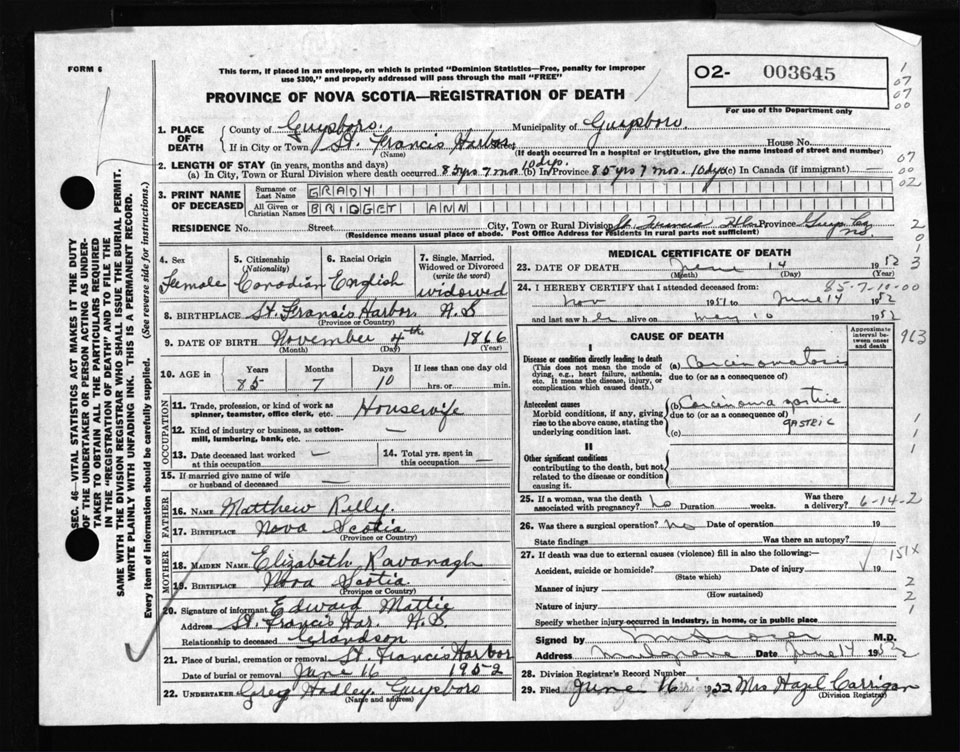 FORM 6
This form, if placed in an envelope, on which is printed "Dominion Statistics—Free, penalty for improper
use $300," and properly addressed will pass through the mail "FREE"
PROVINCE OF NOVA SCOTIA—REGISTRATION OF DEATH
O2- 003645
For use of the Department only
1
07
07
00
07
00
02
2
0
1
3
1. PLACE OF DEATH
County of Guysboro. Municipality of Guysboro.
If in City or Town St. Francis Harbor House No.
(Name) (If death occurred in a hospital or institution, give the name instead of street and number)
2. LENGTH OF STAY (in years, months and days)
(a) In City, Town or Rural Division where death occurred 85 yrs 7 mos 10 dys. (b) In Province 85 yrs 7 mos. 10 dys (c) In Canada (if immigrant) —
3. PRINT NAME OF DECEASED
Surname or Last Name GRADY
All Given or Christian Names BRIDGET ANN
RESIDENCE No. Street City, Town or Rural Division St. Francis Hbr Province Guys Co. N.S.
(Residence means usual place of abode. Post Office Address for residents in rural parts not sufficient)
4. Sex
Female
5. Citizenship
(Nationality)
Canadian
6. Racial Origin
English
7. Single, Married,
Widowed or Divorced
(write the word)
widowed
8. BIRTHPLACE St. Francis Harbor N.S
(Province or Country)
9. DATE OF BIRTH November 4th 1866
(Month) (Day) (Year)
10. AGE in
Years Months Days If less than one day old
85 7 10 hrs. or min.
OCCUPATION
11. Trade, profession, or kind of work as
spinner, teamster, office clerk, etc. Housewife
12. Kind of industry or business, as cotton-
mill, lumbering, bank, etc. —
13. Date deceased last worked
at this occupation —
14. Total yrs. spent in
this occupation —
15. If married give name of wife
or husband of deceased —
FATHER
16. Name Matthew Kelly.
17. Birthplace Nova Scotia
(Province or Country)
MOTHER
18. MAIDEN NAME Elizabeth Kavanagh
19. BIRTHPLACE Nova Scotia.
(Province or Country)
20. Signature of informant Edward Mattie
Address St. Francis Har. N.S.
Relationship to deceased Grandson
21. Place of burial, cremation or removal St. Francis Harbor
Date of burial or removal June 16 1952
22. UNDERTAKER Greg Hadley Guysboro
(Name and Address)
MEDICAL CERTIFICATE OF DEATH
23. DATE OF DEATH June 14 1952
(Month) (Day) (Year)
24. I HEREBY CERTIFY that I attended deceased from: 85-7-10-00
Nov 1951 to June 14 1952
and last saw h er alive on May 10 1952
CAUSE OF DEATH
Approximate
interval be-
tween onset
and death
963
I
Disease or condition directly leading to death
(This does not mean the mode of
dying, e.g., heart failure, asthenia,
etc. It means the disease, injury, or
complication which caused death.)
(a) Carcinomatosis
due to (or as a consequence of)
Antecedent causes
Morbid conditions, if any, giving
rise to the above cause, stating the
underlying condition last.
(b) Carcinoma
due to (or as a consequence of)
GASTRIC
(c)
1
1
1
II
Other significant conditions
contributing to the death, but not
related to the disease or condition
causing it.
25. If a woman, was the death
associated with pregnancy? No Duration weeks. Was there
a delivery? 6-14-2
26. Was there surgical operation? No Date of operation 19
State findings Was there an autopsy?
27. If death was due to external causes (violence) fill in also the following:—
151X
Accident, suicide or homicide? Date of injury 19
(State which)
Manner of injury
(How sustained)
Nature of injury
2
2
1
Specify whether injury occurred in industry, in home, or in public place
Signed by M.D.
Address Mulgrave Date June 14 1952
28. Division Registrar's Record Number
29. Filed June 16 1952 Mrs Hazel Carrigan
(Division Registrar)
SEC. 46—VITAL STATISTICS ACT MAKES IT THE DUTY
OF THE UNDERTAKER OR PERSON ACTING AS UNDER-
TAKER TO OBTAIN ALL THE PARTICULARS REQUIRED
IN THE "REGISTRATION OF DEATH" AND TO FILE THE
SAME WITH THE DIVISION REGISTRAR WHO SHALL ISSUE THE BURIAL PERMIT.
WRITE PLAINLY WITH UNFADING INK. THIS IS A PERMANENT RECORD.
Every item of information should be carefully supplied. (See reverse side for instructions.)